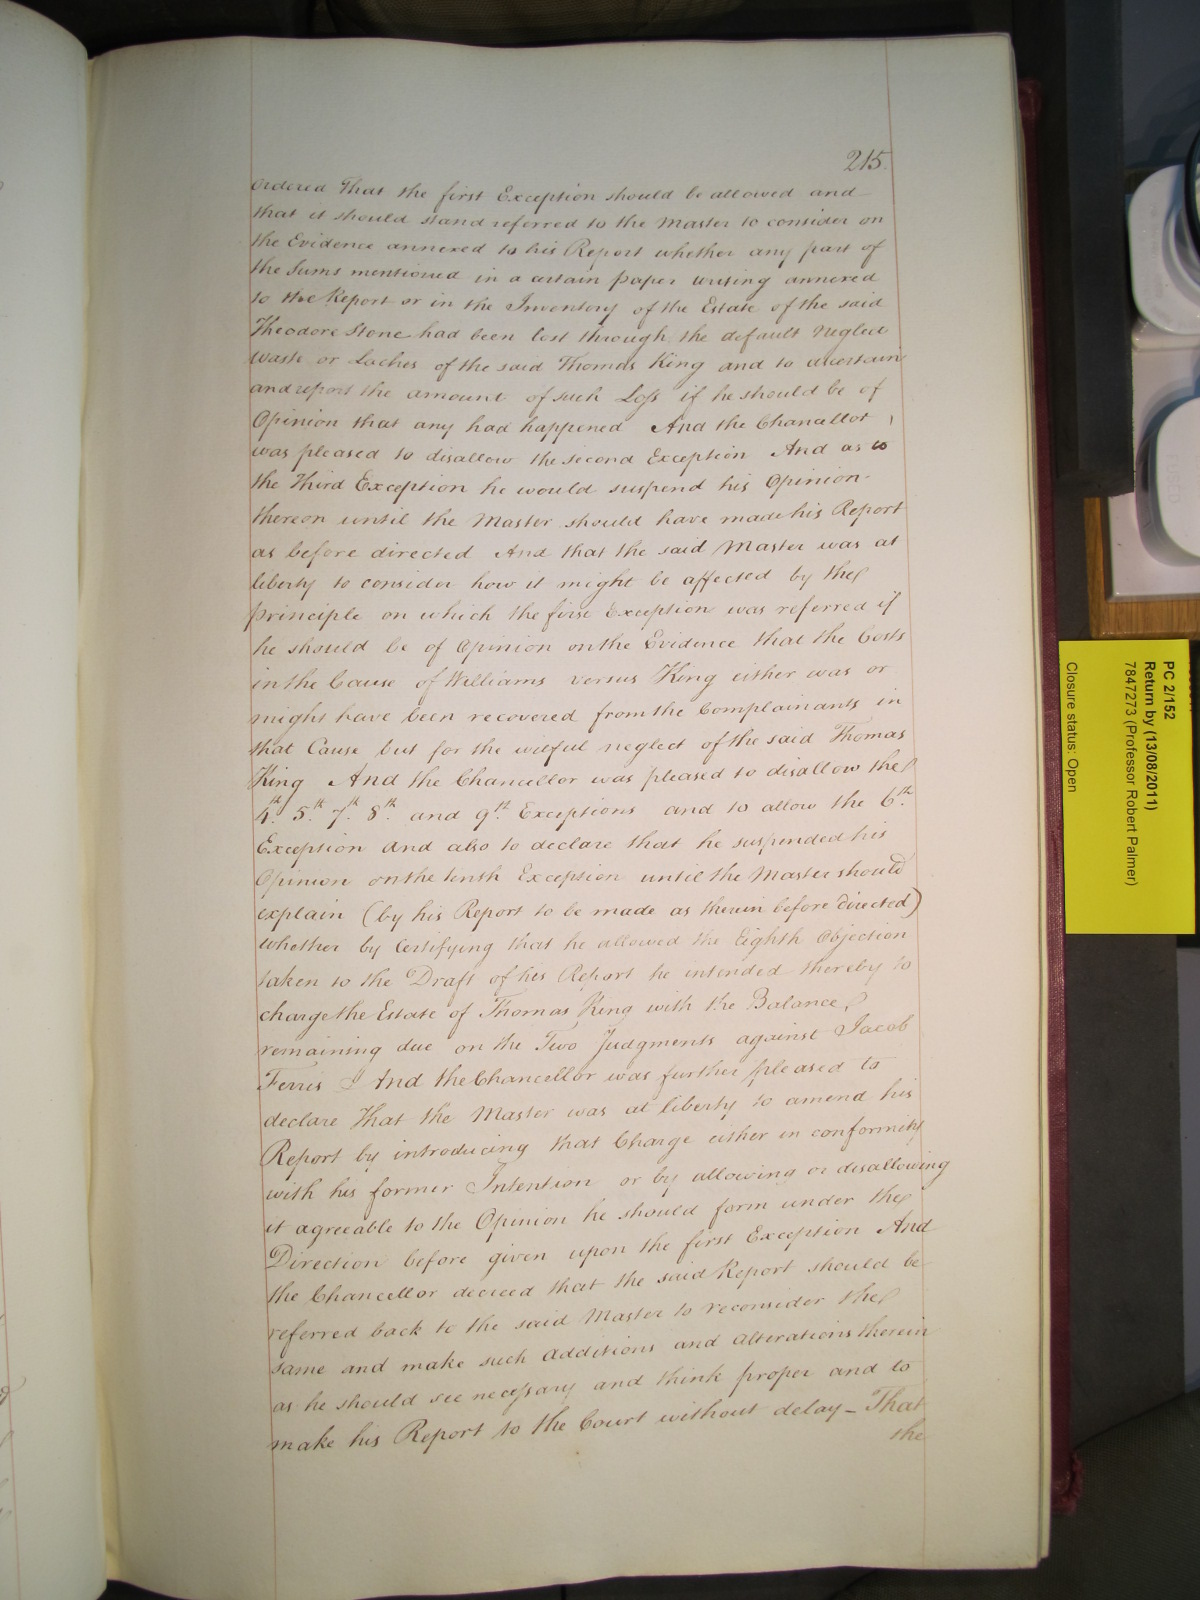 215.
ordered That the first Exception should be allowed and
that it should stand referred to the Master to consider on
the Evidence annexed to his Report whether any part of
the Sums mentioned in a certain paper writing annexed
to the Report or in the Inventory of the Estate of the said
Theodore Stone had been lost through the default Neglect
Waste or Laches of the said Thomas King and to ascertain
and report the amount of such Loss if he should be of
Opinion that any had happened And the Chancellor
was pleased to disallow the second Exception And as to
the Third Exception he would suspend his Opinion
thereon until the Master should have made his Report
as before directed And that the said Master was at
liberty to consider how it might be affected by the
principle on which the first Exception was referred if
he should be of Opinion on the Evidence that the Costs
in the Cause of Williams versus King either was or
might have been recovered from the Complainants in
that Cause but for the wilful neglect of the said Thomas
King And the Chancellor was pleased to disallow the
4th. 5th. 7th. 8th. and 9th. Exceptions and to allow the 6th.
Exception and also to declare that he suspended his
Opinion on the tenth Exception until the Master should
explain (by his Report to be made as therein before directed)
whether by Certifying that he allowed the Eighth Objection
taken to the Draft of his Report he intended thereby to
charge the Estate of Thomas King with the Balance
remaining due on the Two Judgments against Jacob
Ferris And the Chancellor was further pleased to
declare That the Master was at liberty to amend his
Report by introducing that Charge either in conformity
with his former Intention or by allowing or disallowing
it agreeable to the Opinion he should form under the
Direction before given upon the first Exception And
the Chancellor decreed that the said Report should be
referred back to the said Master to reconsider the
same and make such Additions and Alterations therein
as he should see necessary and think proper and to
make his Report to the Court without delay – That
the
PC 2/152
Return by (13/08/2011)
7847273 (Professor Robert Palmer)
Closure status: Open